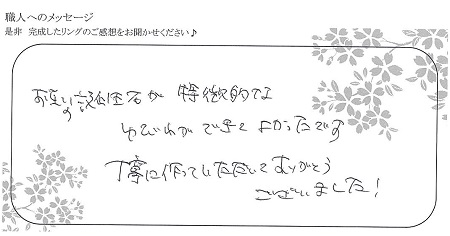 職人へのメッセージ
是非 完成したリングのご感想をお聞かせください♪
お互いの誕生石が 特徴的な
ゆびわが できて よかったです
丁寧に作っていただいて ありがとう
ございました!